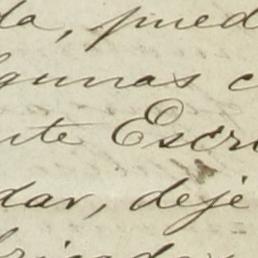 da, pued
lgunas c
nte Escri
dar, deje